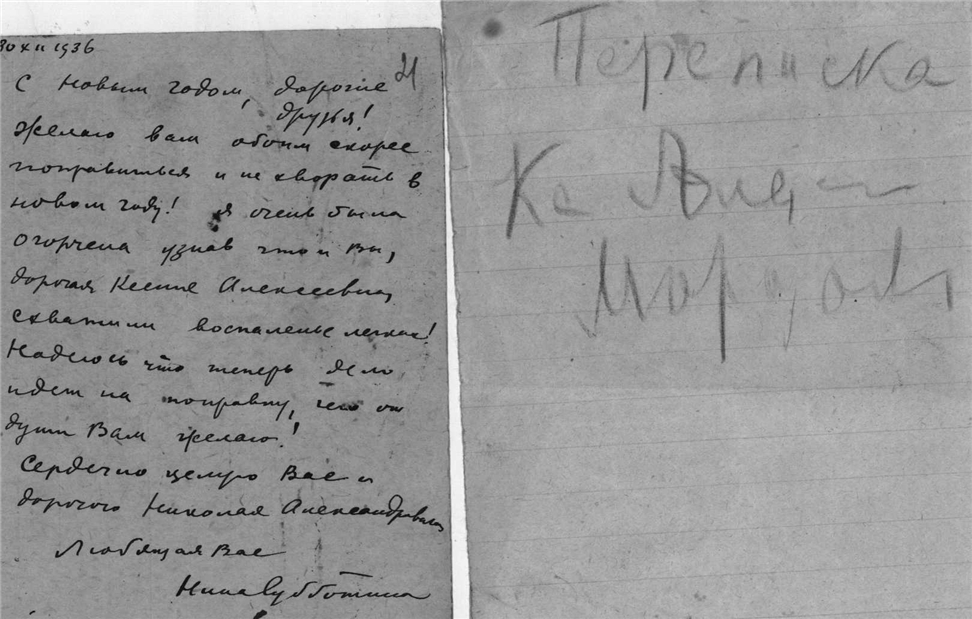 30 XII 1936
21
С новым годом, дорогие
друзья!
Желаю вам обоим скорее
поправиться и не хворать в
новом году! Я очень была
огорчена узнав что и Вы,
дорогая Ксения Алексеевна,
схватили воспаленье легких!
Надеюсь что теперь дело
идет на поправку, чего от
души Вам желаю!
Сердечно целую Вас и
дорогого Николая Александровича
Любящая Вас
Нина Субботина
Переписка
Кс
Морозовы